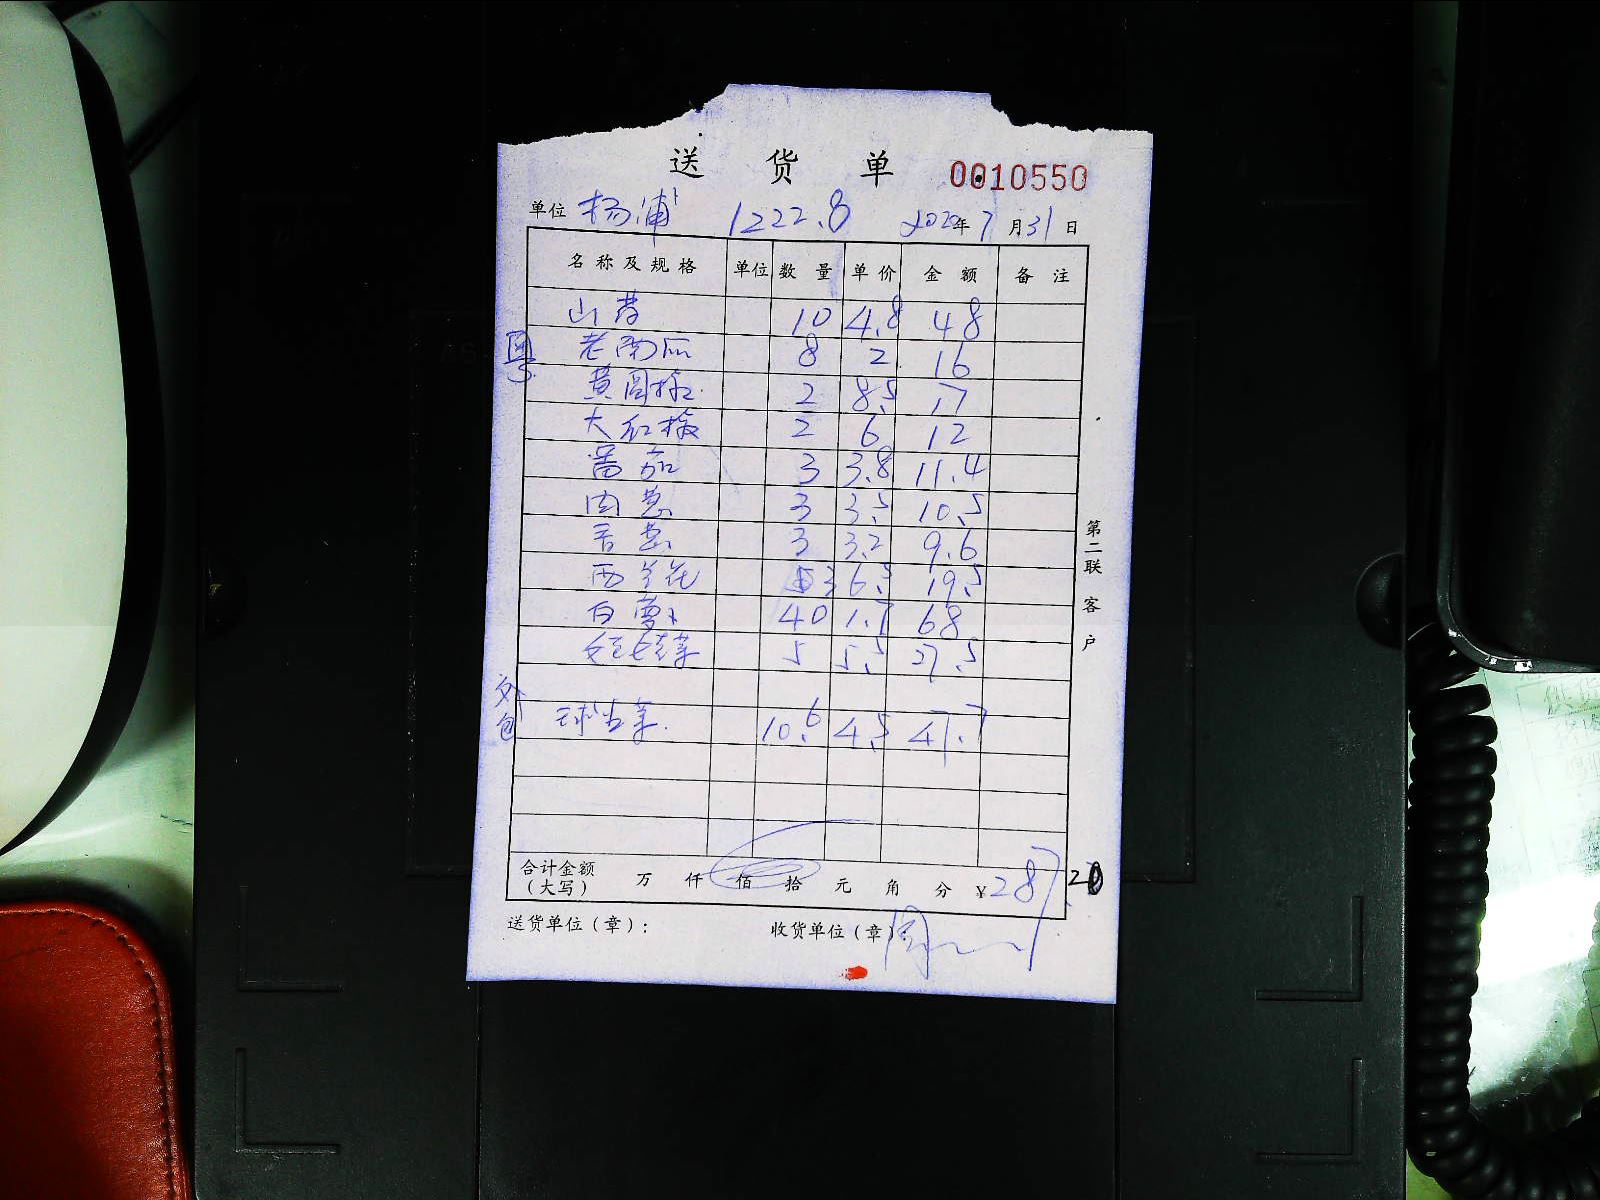 送货单 0010550
单位 杨浦 1222.8 2020年7月31日
名称及规格 单位 数量 单价 金额 备注
山药 10 4.8 48
老南瓜 8 2 16
黄圆椒 2 8.5 17
大红椒 2 6 12
番茄 3 3.8 11.4
肉葱 3 3.5 10.5
香葱 3 3.2 9.6
西兰花 3 6.5 19.5
白萝卜 40 1.7 68
娃娃菜 5 5.5 27.5
球生菜 10.6 4.5 47.7
合计金额
(大写) 万 仟 佰 拾 元 角 分 ¥287.20
送货单位(章): 收货单位(章):
第二联 客户